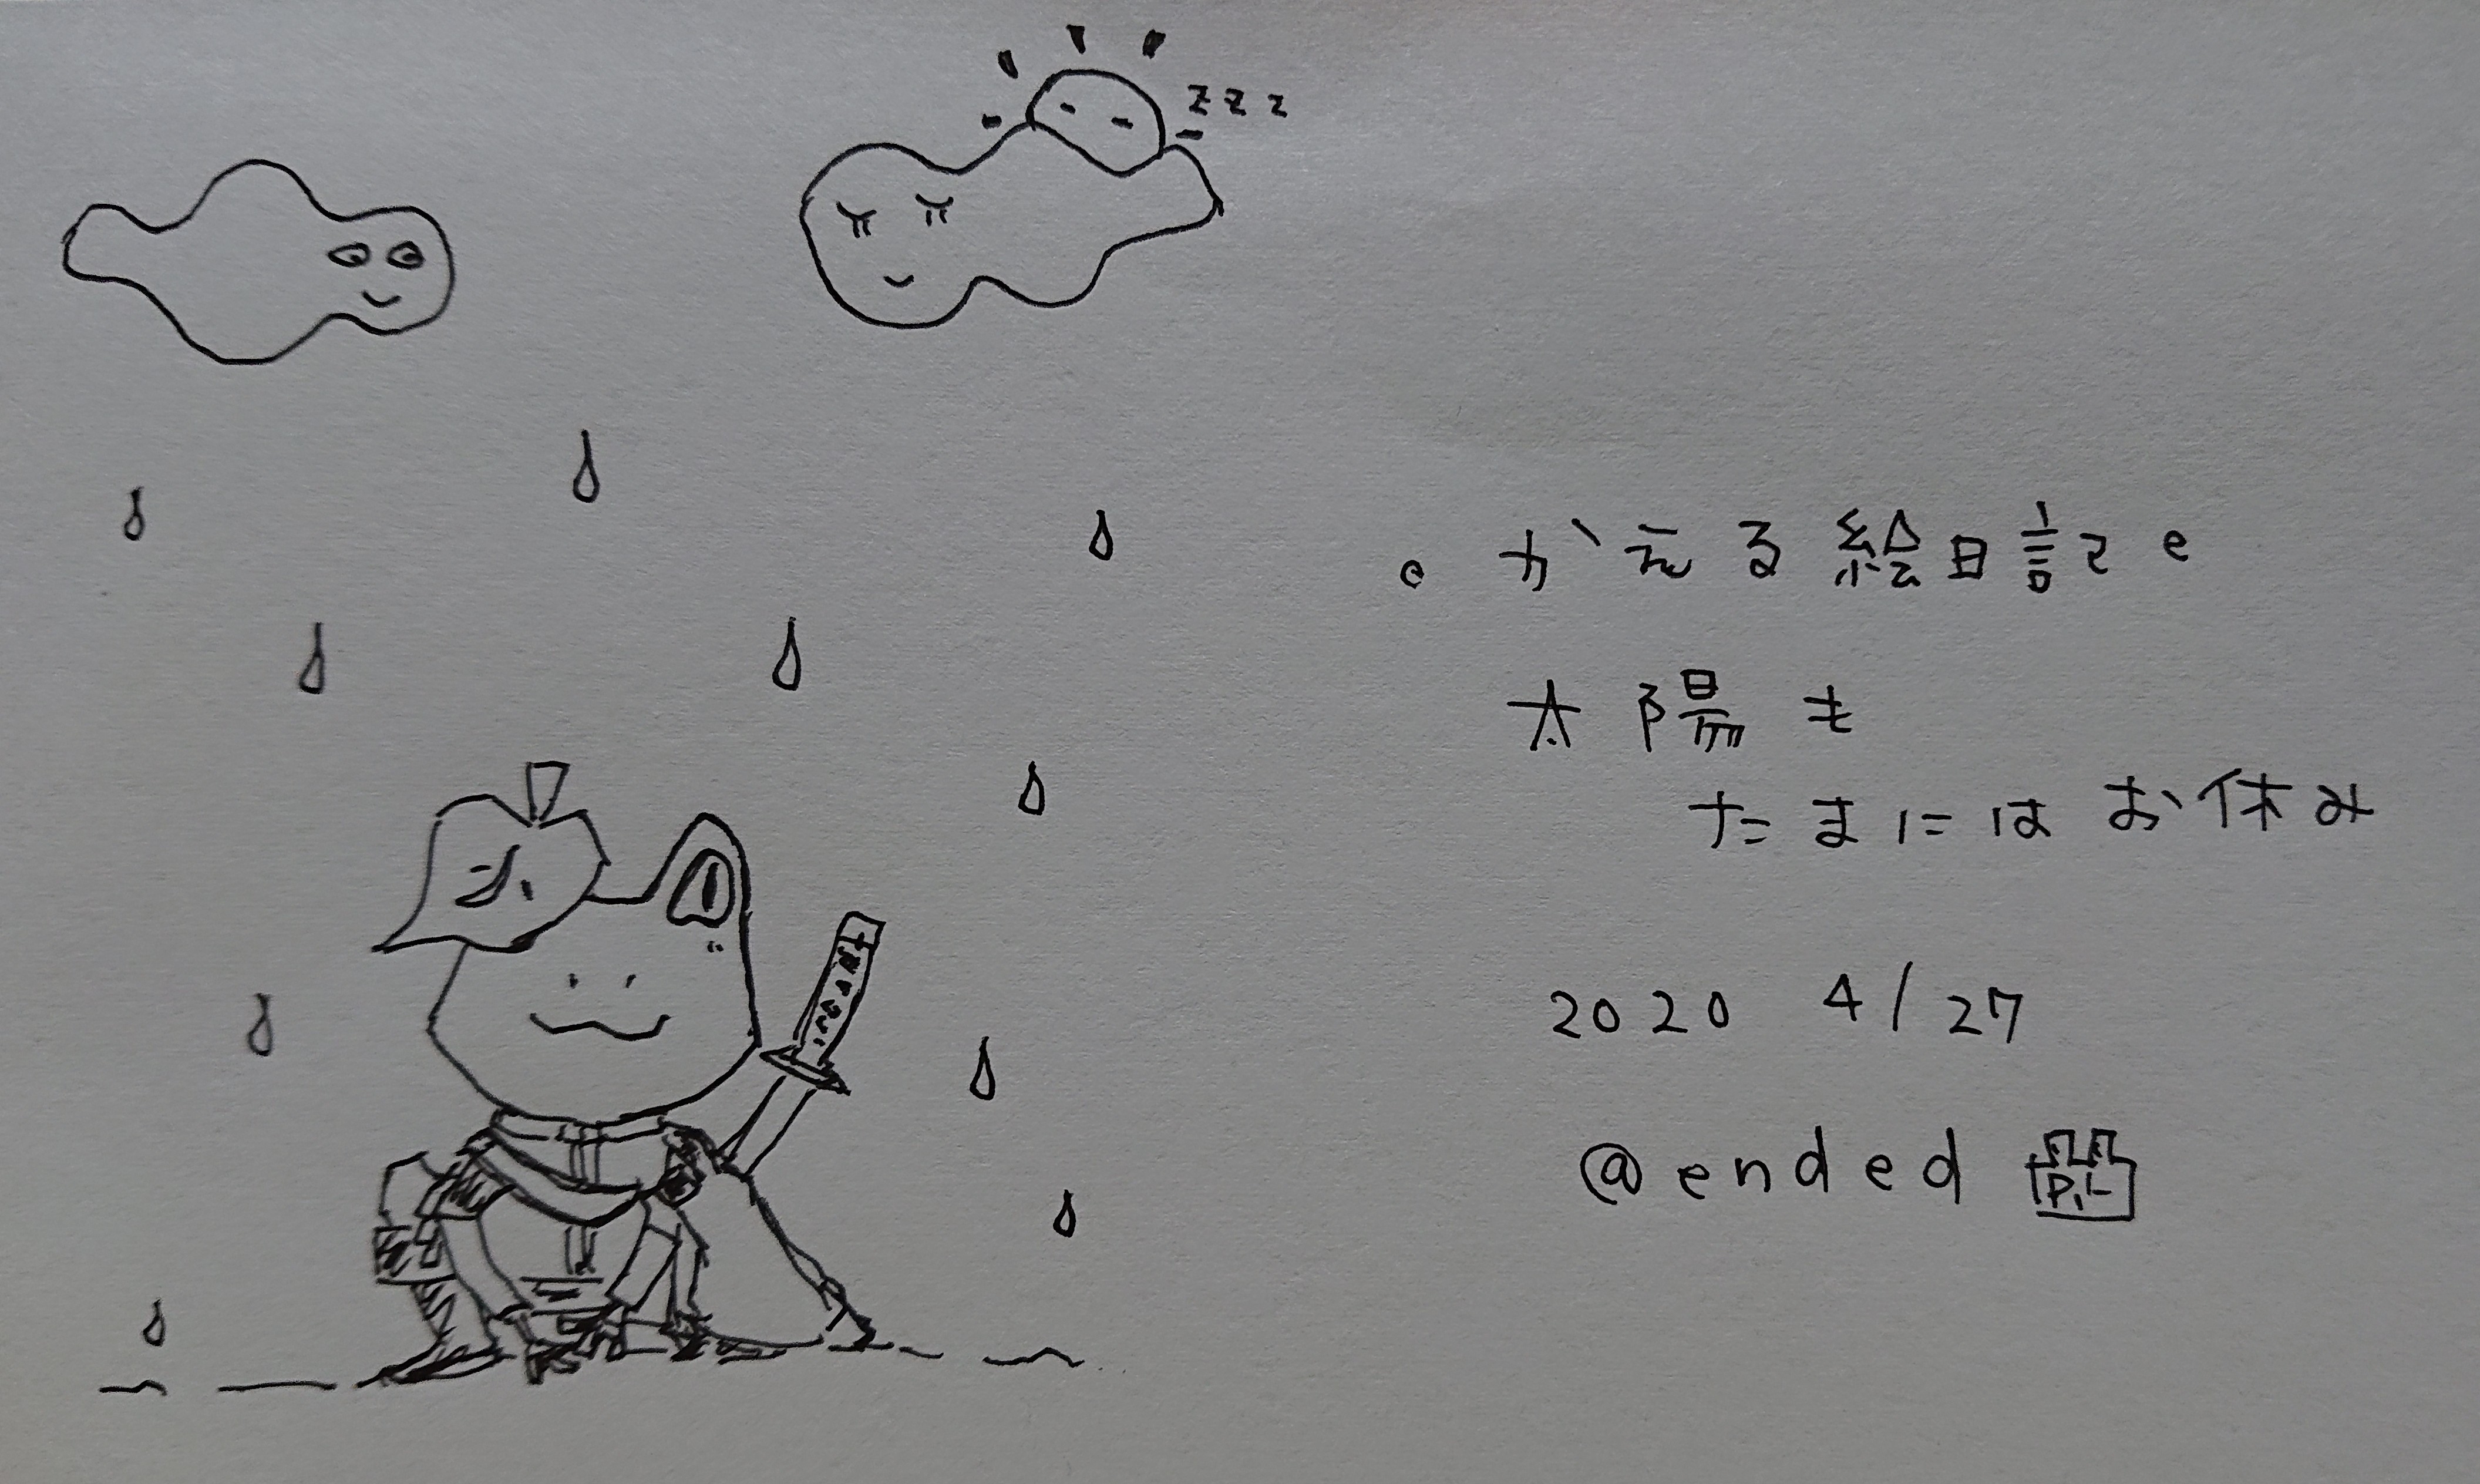 zzz
。かえる絵日記。
太陽も
たまにはお休み
2020 4/27
@ended